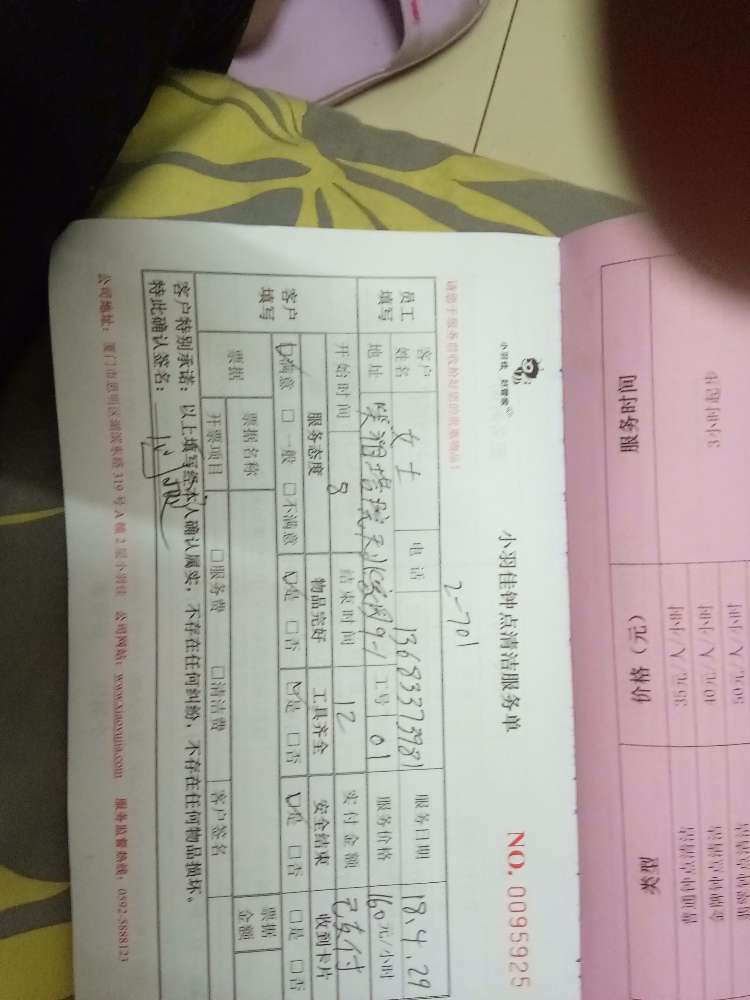 服务时间 价格（元） 类型
3小时起步 35元/人/小时 普通钟点清洁
40元/人/小时 金牌钟点清洁
50元/人/小时
小羽佳
小羽佳钟点清洁服务单 NO. 0095925
2-701
员工填写 客户姓名 女士 电话 13683373981 服务日期 18.4.29
地址 9-1 工号 01 服务价格 160元/小时
开始时间 8 结束时间 12 实付金额 已支付
客户填写 服务态度 物品完好 工具齐全 安全结束 收到卡片
☑满意 □一般 □不满意 ☑是 □否 ☑是 □否 ☑是 □否 □是 □否
票据 票据名称 票据金额
开票项目 □服务费 □清洁费 客户签名
客户特别承诺：以上填写经本人确认属实，不存在任何纠纷，不存在任何物品损坏。
特此确认签名：
公司地址：厦门市思明区湖滨东路319号A幢2层小羽佳 公司网站：www.xiaoyujia.com 服务监督热线：0592-5888123